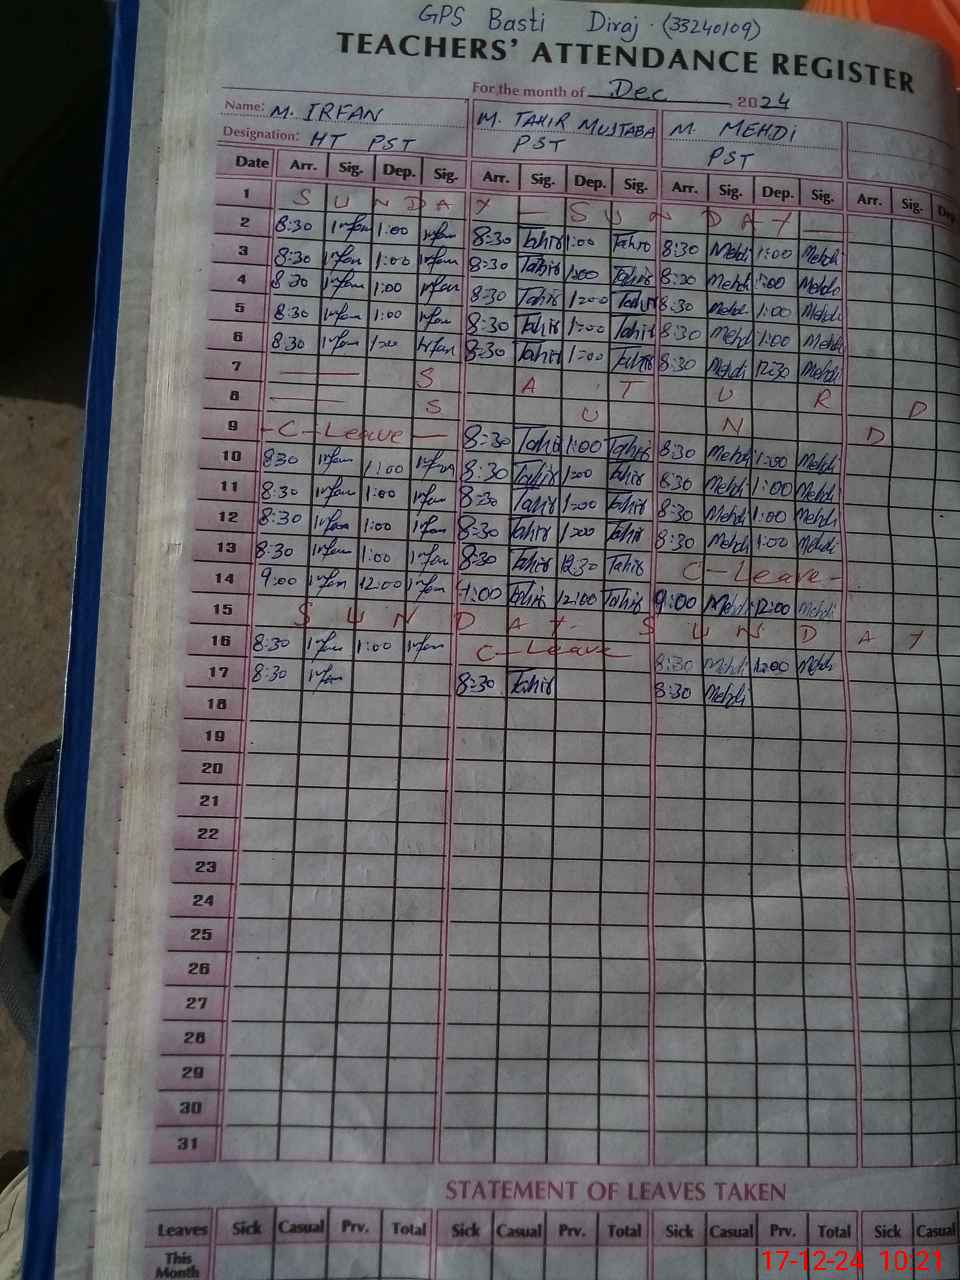 GPS Basti Diraj. (33240109)
TEACHERS' ATTENDANCE REGISTER
For the month of Dec 2024
Name: M. IRFAN M. TAHIR MUJTABA M. MEHDI
Designation: HT PST PST PST
Date Arr. Sig. Dep. Sig. Arr. Sig. Dep. Sig. Arr. Sig. Dep. Sig. Arr. Sig.
1 S U N D A Y — S U N D A Y —
2 8:30 Irfan 1:00 Irfan 8:30 Tahir 1:00 Tahir 8:30 Mehdi 1:00 Mehdi
3 8:30 Irfan 1:00 Irfan 8:30 Tahir 1:00 Tahir 8:30 Mehdi 1:00 Mehdi
4 8:30 Irfan 1:00 Irfan 8:30 Tahir 1:00 Tahir 8:30 Mehdi 1:00 Mehdi
5 8:30 Irfan 1:00 Irfan 8:30 Tahir 1:00 Tahir 8:30 Mehdi 1:00 Mehdi
6 8:30 Irfan 1:00 Irfan 8:30 Tahir 1:00 Tahir 8:30 Mehdi 12:30 Mehdi
7 — S A T U R D
8 — S U N D
9 - C - Leave — 8:30 Tahir 1:00 Tahir 8:30 Mehdi 1:00 Mehdi
10 8:30 Irfan 1:00 Irfan 8:30 Tahir 1:00 Tahir 8:30 Mehdi 1:00 Mehdi
11 8:30 Irfan 1:00 Irfan 8:30 Tahir 1:00 Tahir 8:30 Mehdi 1:00 Mehdi
12 8:30 Irfan 1:00 Irfan 8:30 Tahir 1:00 Tahir 8:30 Mehdi 1:00 Mehdi
13 8:30 Irfan 1:00 Irfan 8:30 Tahir 12:30 Tahir C - Leave -
14 9:00 Irfan 12:00 Irfan 9:00 Tahir 12:00 Tahir 9:00 Mehdi 12:00 Mehdi
15 S U N D A Y - S U N D A Y
16 8:30 Irfan 1:00 Irfan C - Leave 8:30 Mehdi 1:00 Mehdi
17 8:30 Irfan 8:30 Tahir 8:30 Mehdi
18
19
20
21
22
23
24
25
26
27
28
29
30
31
STATEMENT OF LEAVES TAKEN
Leaves Sick Casual Prv. Total Sick Casual Prv. Total Sick Casual Prv. Total Sick Casual
This Month
17-12-24 10:21